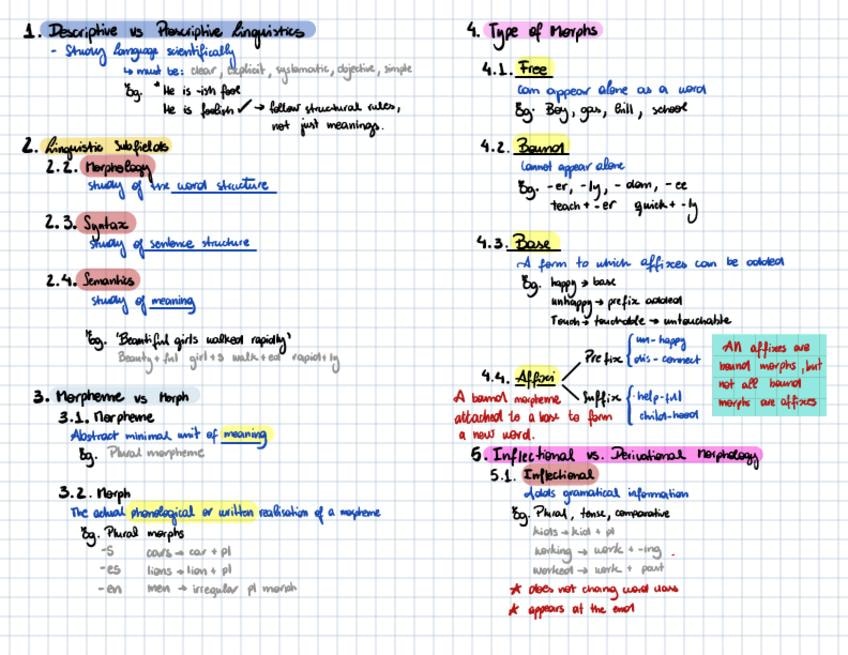 1. Descriptive vs Prescriptive Linguistics
- Study language scientifically
↳ must be: clear, explicit, systematic, objective, simple
Eg. * He is -ish fool
He is foolish ✓ → follow structural rules,
not just meanings.
2. Linguistic Subfields
2.2. Morphology
Study of the word structure
2.3. Syntax
Study of sentence structure
2.4. Semantics
Study of meaning
Eg. 'Beautiful girls walked rapidly'
Beauty+ful girl+s walk+ed rapid+ly
3. Morpheme vs Morph
3.1. Morpheme
Abstract minimal unit of meaning
Eg. Plural morpheme
3.2. Morph
The actual phonological or written realisation of a mopheme
Eg. Plural morphs
-s cars → car + pl
-es lions → lion + pl
-en men → irregular pl morph
4. Type of Morphs
4.1. Free
Can appear alone as a word
Eg. Boy, gas, bill, school
4.2. Bound
Cannot appear alone
Eg. -er, -ly, -dom, -ee
teach + -er quick + -ly
4.3. Base
A form to which affixes can be added
Eg. happy → base
unhappy → prefix added
Touch → touchable → untouchable
4.4. Affixi
A bound morpheme
attached to a base to form
a new word.
Prefix
un-happy
dis-connect
Suffix
help-ful
child-hood
All affixes are
bound morphs, but
not all bound
morphs are affixes
5. Inflectional vs. Derivational Morphology
5.1. Inflectional
Adds gramatical information
Eg. Plural, tense, comparative
kids → kid + pl
working → work + -ing.
worked → work + past
* does not chang word class
* appears at the end